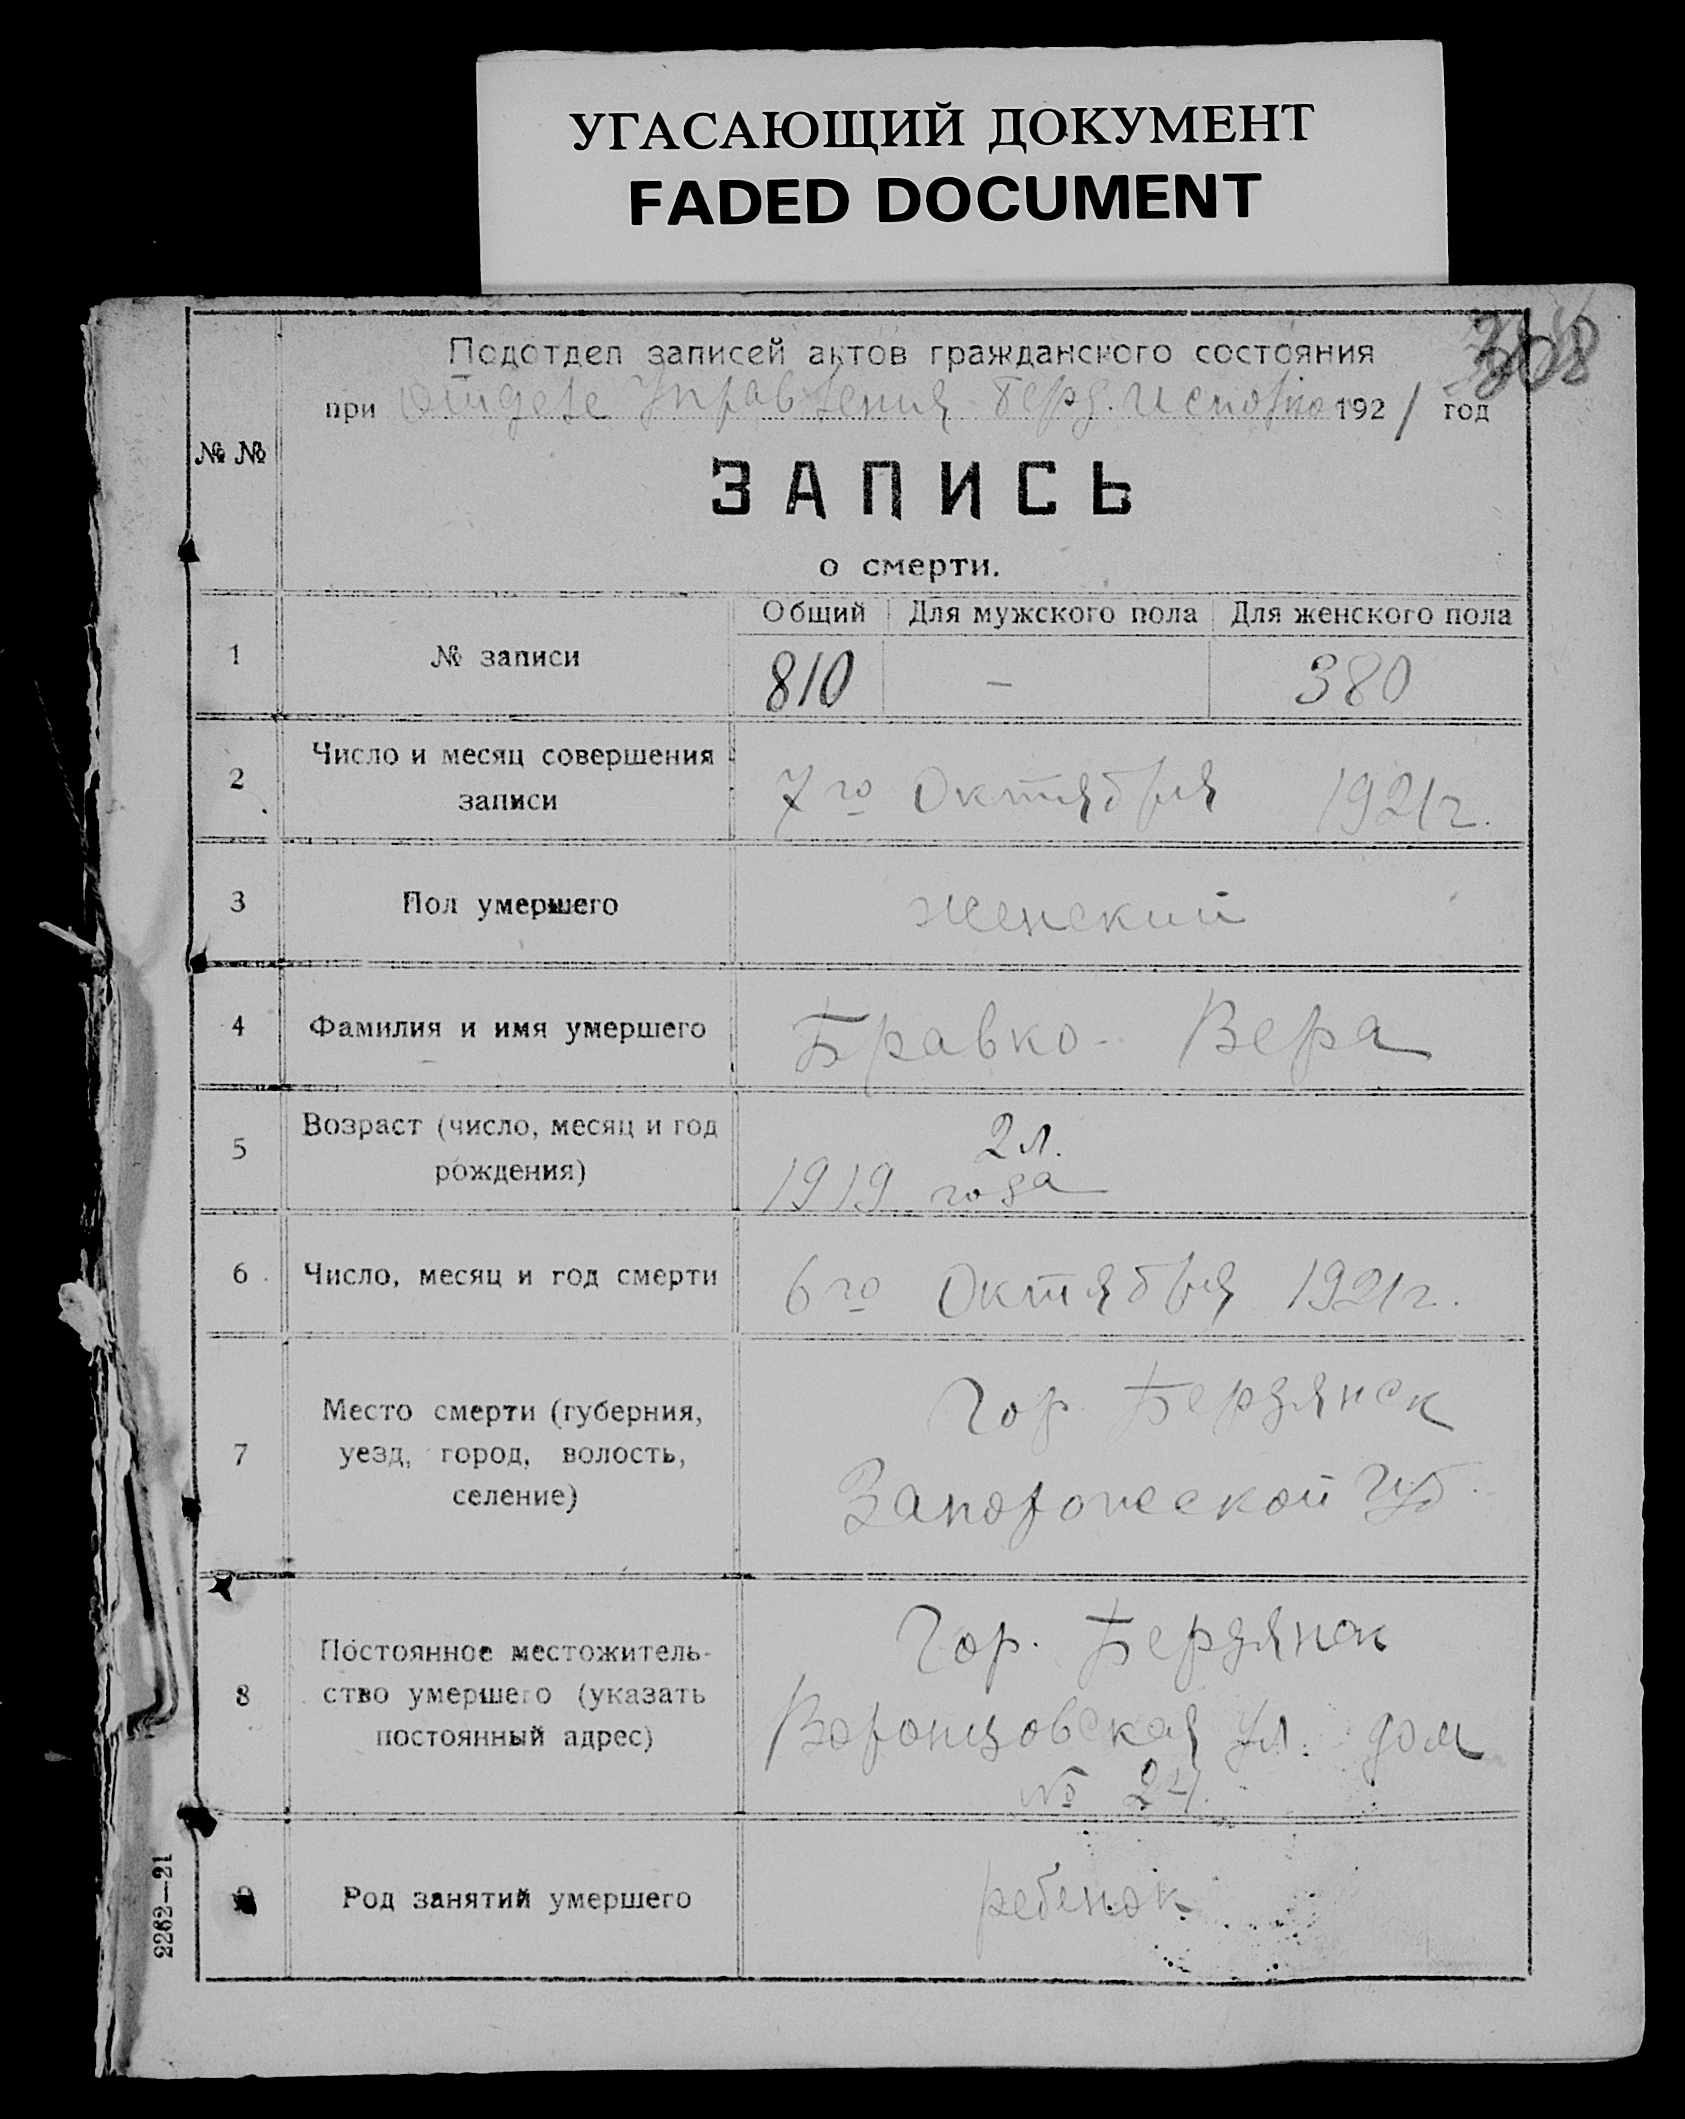 УГАСАЮЩИЙ ДОКУМЕНТ
FADED DOCUMENT
Подотдел записей актов гражданского состояния
при Отделе Управления Берд. Исполко 1921 год
№ №
ЗАПИСЬ
о смерти.
Общий Для мужского пола Для женского пола
1 № записи 810 – 380
2 Число и месяц совершения
записи 7го Октября 1921г.
3 Пол умершего женский
4 Фамилия и имя умершего Бравко Вера
5 Возраст (число, месяц и год
рождения) 2 л.
1919 года
6 Число, месяц и год смерти 6го Октября 1921г.
7 Место смерти (губерния,
уезд, город, волость,
селение)
Гор. Бердянск
Запорожской губ.
8 Постоянное местожитель-
ство умершего (указать
постоянный адрес)
Гор. Бердянск
Воронцовская ул. дом
№ 24.
9 Род занятий умершего ребенок
2262—21